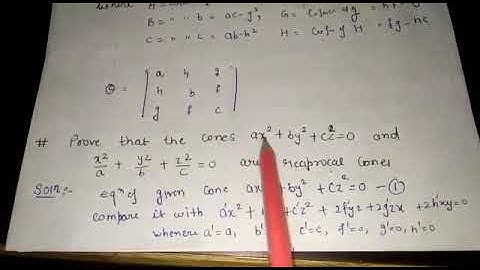 where
B = " " b = ac-g², G =
C = " " c = ab-h² H = Cof of H = fg - hc
a h g
h b f
g f c
# Prove that the cones ax² + by² + cz² = 0 and
x²/a + y²/b + z²/c = 0 are reciprocal cones
Soln:- eqn of given cone ax² +by² + cz² = 0 - ①
compare it with a'x² + c'z² + 2f'yz + 2g'zx + 2h'xy = 0
where a' = a, b' c' = c, f' = 0, g' = 0, h' = 0